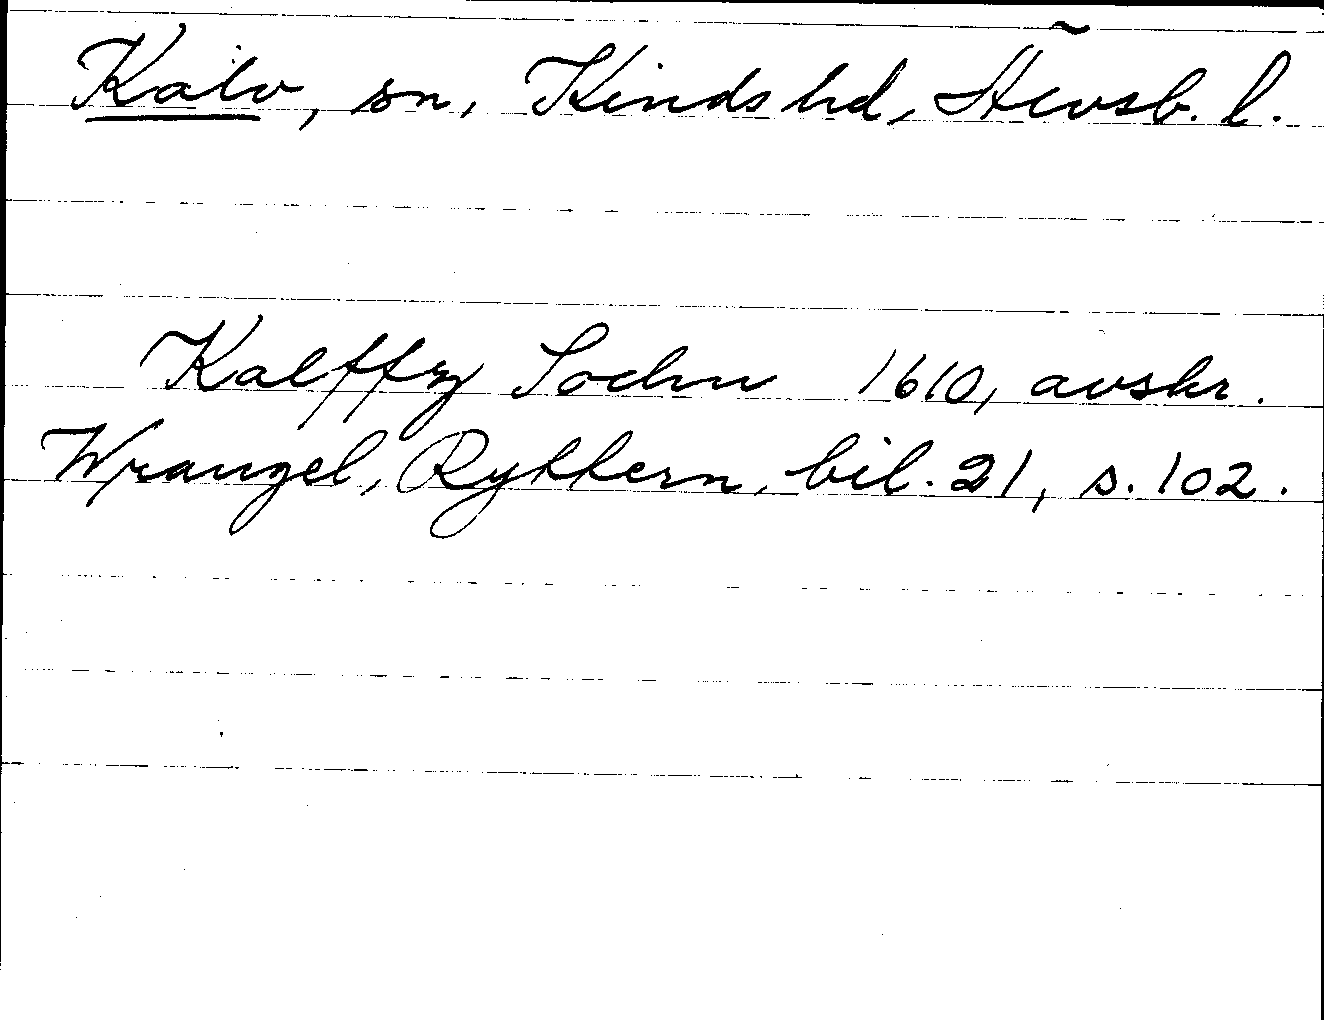 Kalv, sn, Kinds hd, Älvsb. l.
Kalffz Sochn 1610, avskr.
Wrangel, Ryttern, bil. 21, s. 102.